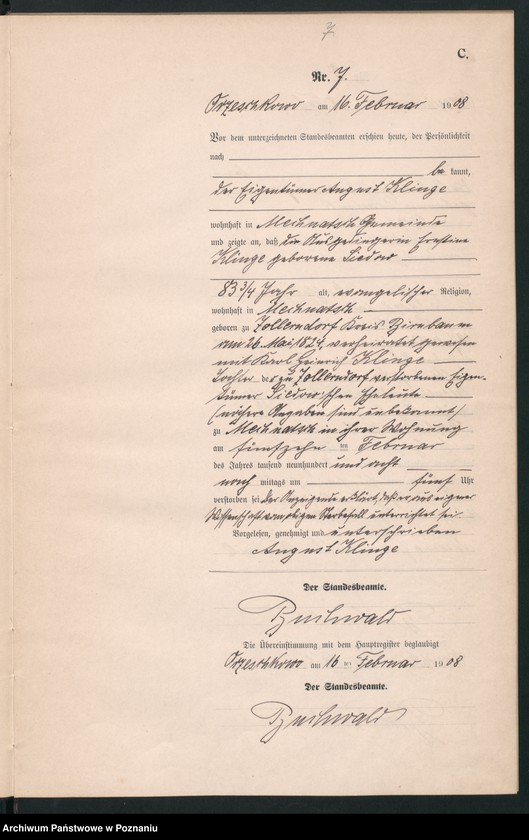 7
C.
Nr. 7.
Orzeschkowo am 16. Februar 1908
Vor dem unterzeichneten Standesbeamten erschien heute, der Persönlichkeit
nach
be kannt,
der Eigentümer August Klinge
wohnhaft in Mechnatsch Gemeinde
und zeigte an, daß die Ausgedingerin Ernstine
Klinge geborene Liedow
83 3/4 Jahr alt, evangelischer Religion,
wohnhaft in Mechnatsch
geboren zu Zollerndorf Kreis Birnbaum
am 26. Mai 1824, verheiratet gewesen
mit Karl Heinrich Klinge
Tochter der zu Zollerndorf verstorbenen Eigen-
tümer Liedow'schen Eheleute
(nähere Angaben sind unbekannt)
zu Mechnatsch in ihrer Wohnung
am fünfzehn ten Februar
des Jahres tausend neunhundert und acht
nach mittags um fünf Uhr
verstorben sei. Der Anzeigende erklärt, daß er aus eigener
Wissenschaft vom obigen Sterbefall unterrichtet sei.
Vorgelesen, genehmigt und unterschrieben
August Klinge
Der Standesbeamte.
Buchwald
Die Übereinstimmung mit dem Hauptregister beglaubigt
Orzeschkowo am 16 ten Februar 1908
Der Standesbeamte.
Buchwald
Archiwum Państwowe w Poznaniu